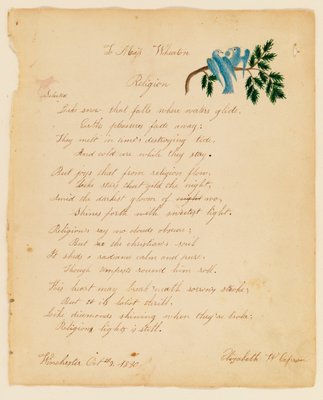 To Miss Wheaton
Religion
Selected
Like snow that falls where waters glide,
Earth's pleasures fade away;
They melt in time's destroying tide,
And cold are while they stay.
But joys that from religion flow,
Like stars that gild the night,
Amid the darkest gloom of woe,
Shines forth with sweetest light.
Religion's ray no clouds obscure;
But o'er the christian's soul
It sheds a radiance calm and pure,
Though tempests round him roll.
His heart may break 'neath sorrow's stroke;
But to its latest thrill,
Like diamonds shining when they're broke;
Religion lights it still.
Winchester Oct 1830
Elizabeth W